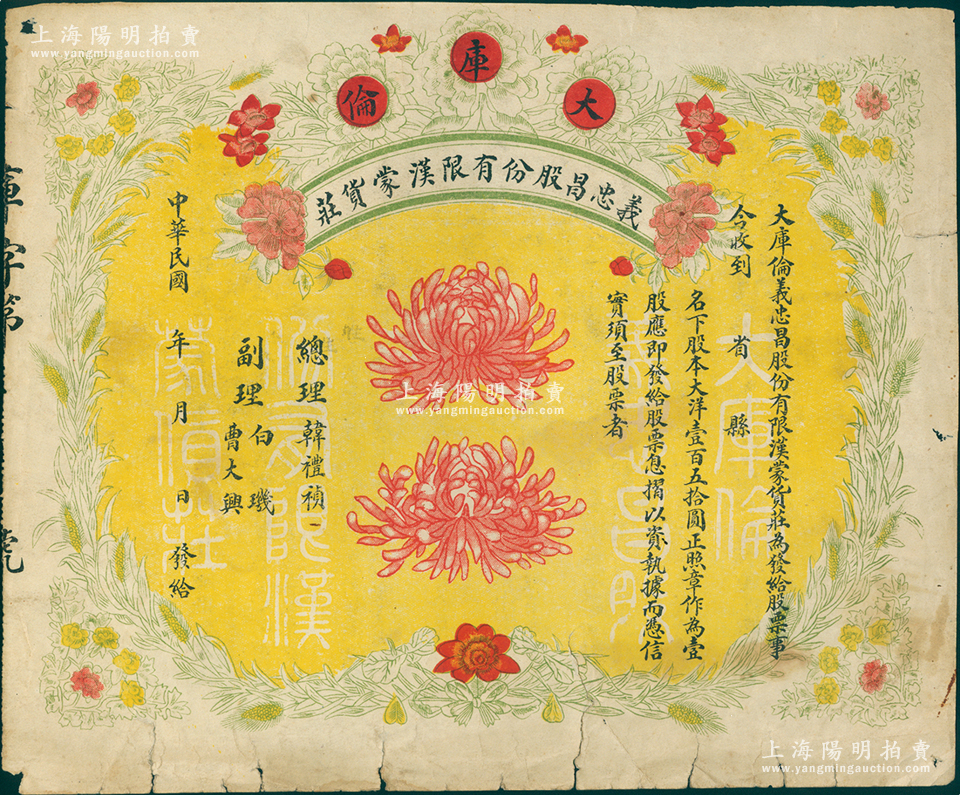 上海陽明拍賣
www.yangmingauction.com
大庫倫
義忠昌股份有限漢蒙貨莊
大庫倫義忠昌股份有限漢蒙貨莊為發給股票事
今收到
省 縣
名下股本大洋壹百五拾圓正照章作為壹
股應即發給股票息摺以資執據而憑信
實須至股票者
總理 韓禮禎
副理 白璣
曹大興
中華民國 年 月 日 發給
字第 號
大庫倫
義忠昌股
份有限漢
蒙貨莊
上海陽明拍賣
www.yangmingauction.com
上海陽明拍賣
www.yangmingauction.com